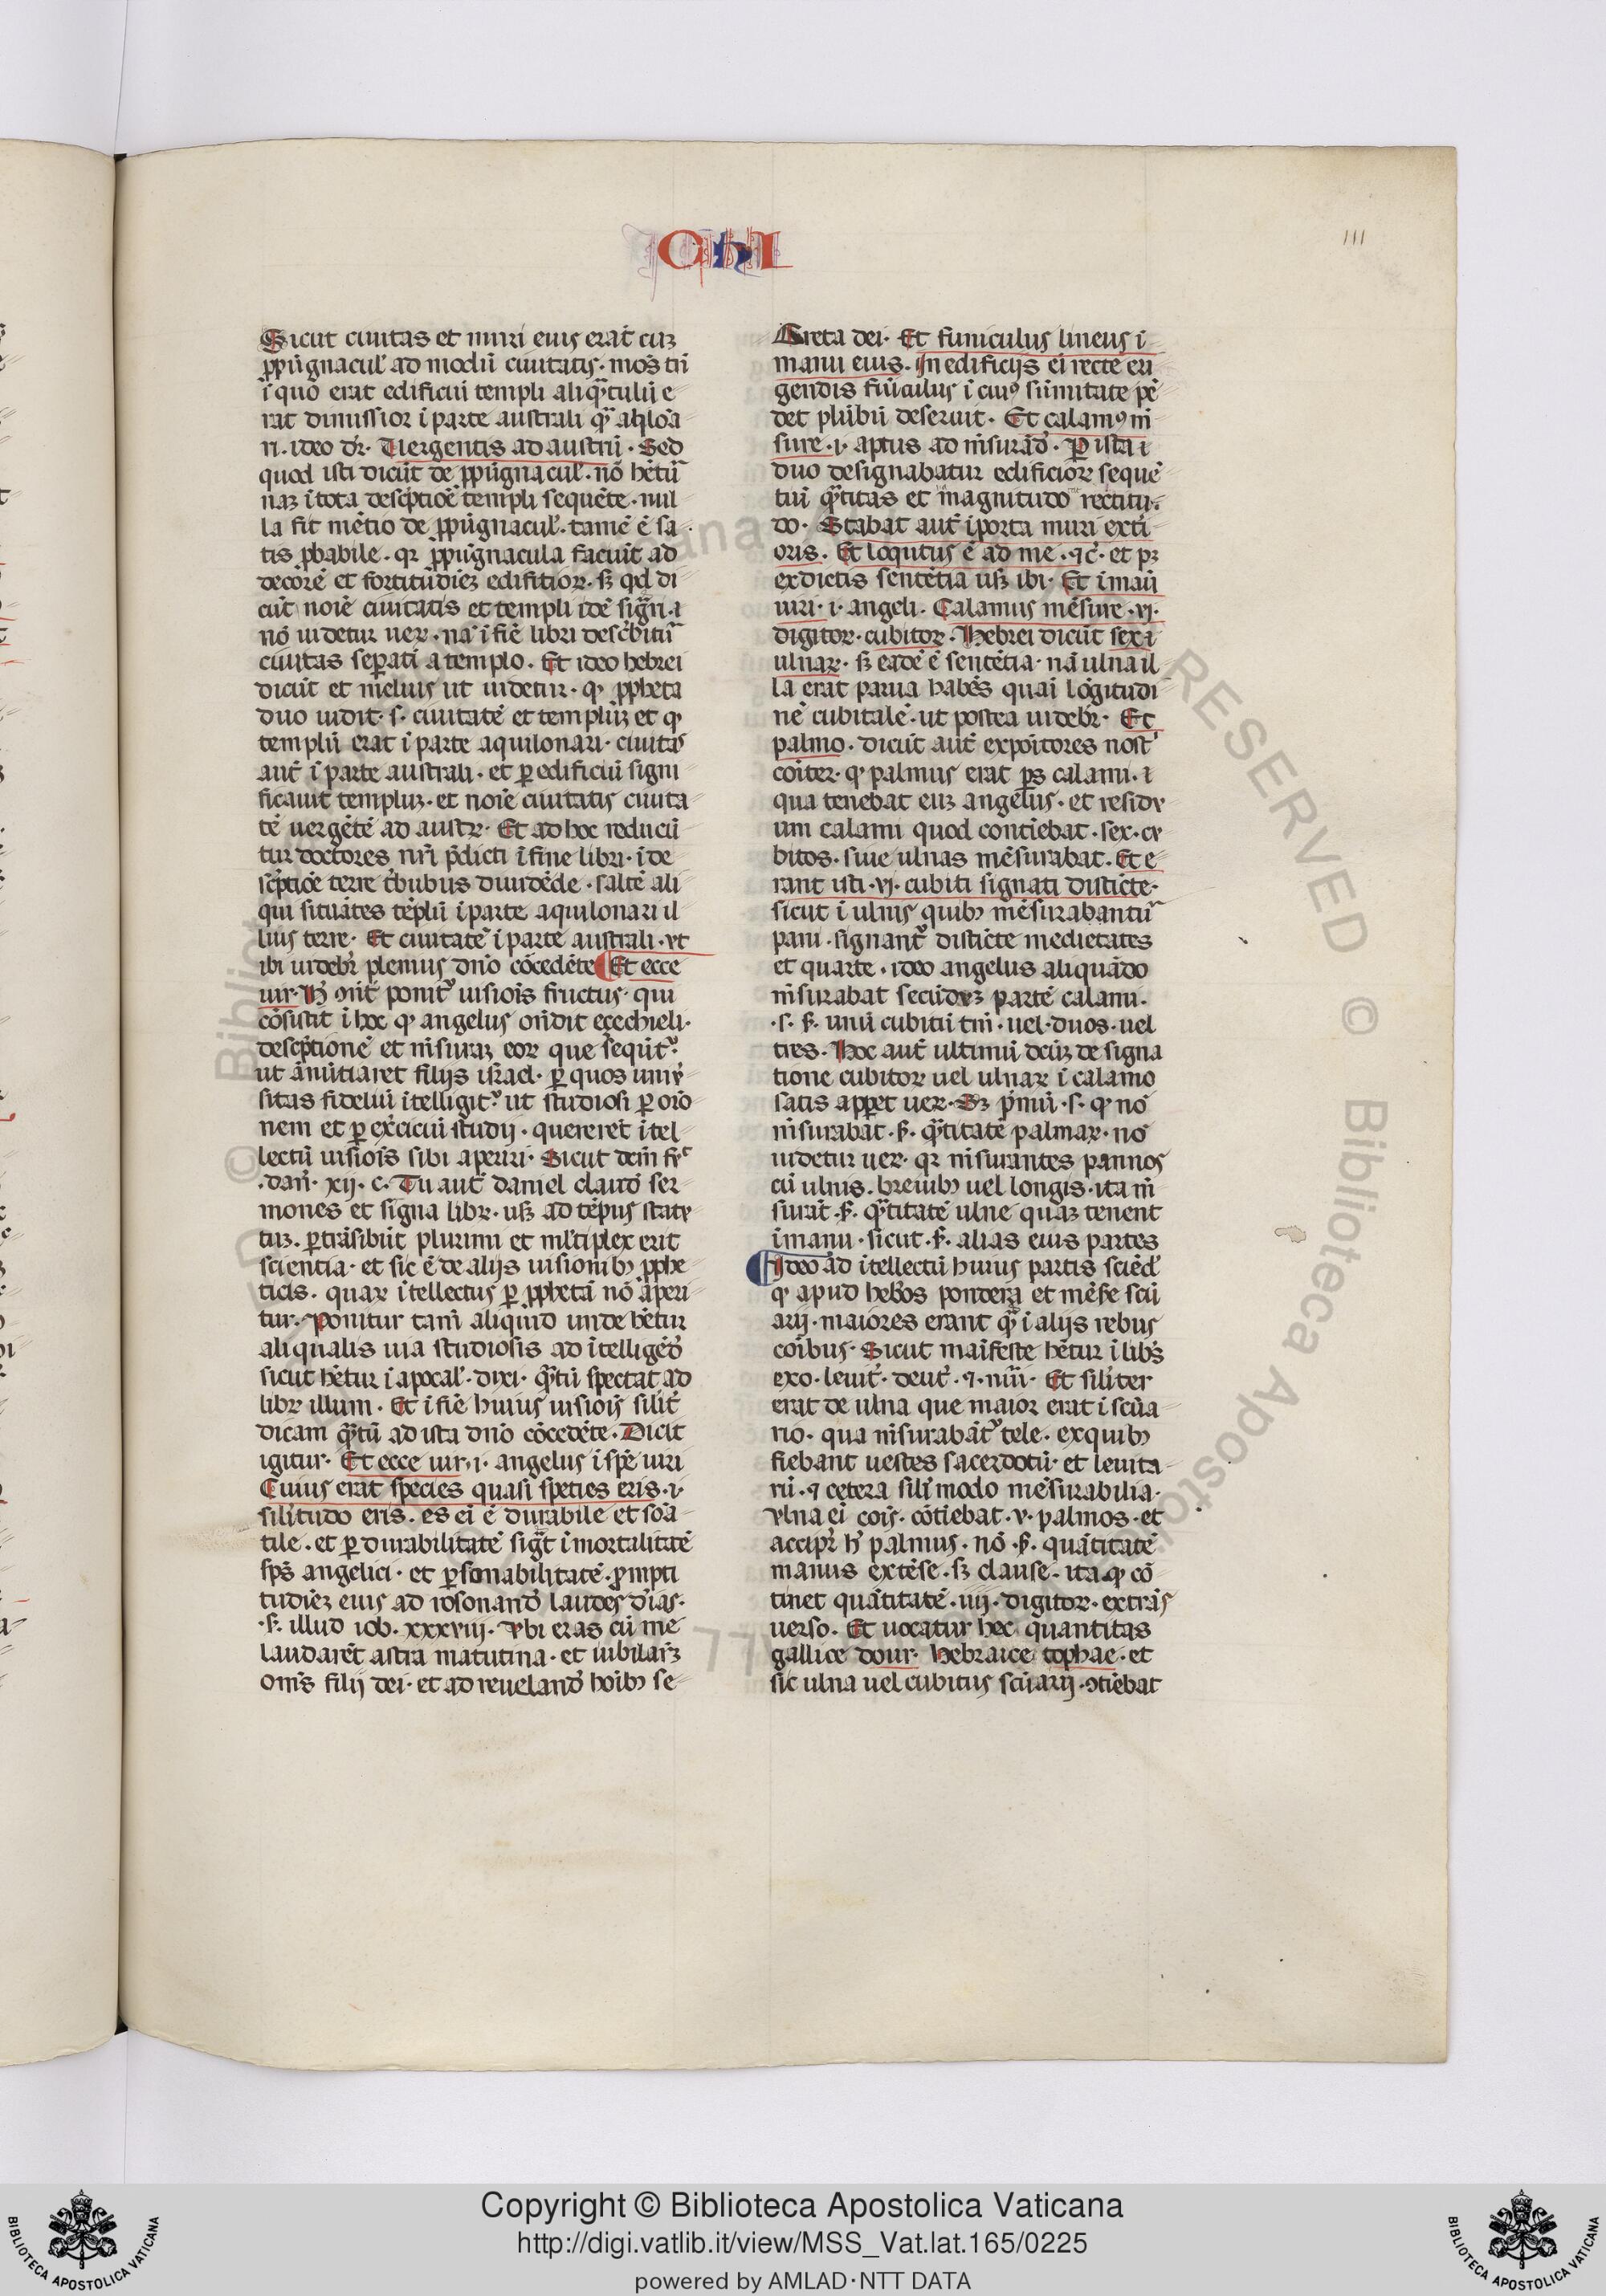 CHI
III
Sicut ciuitas et muri eius erāt cuꝫ
ꝓpūgnacul̓ ad modū ciuitatis. mōs tn̄
ī quo erat edificiū templi aliqᵃntulū e
rat dimissior ī parte australi qᵃ aq̇loa
ri. ideo dr̄. Uergentis ad austrū. Sed
quod isti dicūt de ꝓpūgnacul̓. nō hētur
naꝫ ī tota descͥptiōe templi sequēte. nul
la fit mētio de ꝓpūgnacul̓. tamē ē sa
tis ꝓbabile. qꝛ ꝓpūgnacula faciūt ad
decorē et fortitudīeꝫ edifitioꝝ. sꝫ qd̓ di
cūt noīe ciuitatis et templi idē sigͣri
nō uidetur ueꝝ. nā ī fīe libri descͥbitur
ciuitas seꝑati a templo. Et ideo hebrei
dicūt et melius ut uidetur. ꝙ ꝓpheta
duo uidit. s. ciuitatē et templūꝫ et ꝙ
templū erat ī parte aquilonari. ciuitas
aūt ī parte australi. et ꝑ edificiū signi
ficauit templuꝫ. et noīe ciuitatis ciuita
tē uergētē ad austꝝ. Et ad hoc reducū
tur doctores nr̄i p̄dicti ī fine libri. ī de
scͥptiōe terre tͥbubus diuidēde. saltē ali
qui situātes tēplū ī parte aquilonari il
lius terre. Et ciuitatē ī parte australi. vt
ibi uidebr̄ plenius dn̄o cōcedēte. Et ecce
uir. Hͥ ꝯnͬ ponitͬ uisiōis fructus. qui
cōsistit ī hoc ꝙ angelus on̄dit eçechieli.
descͥptionē et mēsuraꝫ eoꝝ que sequūtͬ.
ut ānūtiaret filijs isrl̓. ꝑ quos uniu̓
sitas fidelium ītelligitͬ ut studiosi ꝑ orō
nem et ꝑ exͨciciū studij. quererēt ītel
lectū uisiōis sibi aperiri. Sicut dcm̄ ē
.dan̄. xij. c. Tu aūt daniel claude ser
mones et signa libꝝ. usꝫ ad tēpus statu
tuꝫ. ꝑtrāsibūt plurimi et ml̓tiplex erit
scientia. et sic ē de alijs uisionibꝫ ꝓphe
ticis. quaꝝ ītellectus ꝑ ꝓphetā nō aperi
tur. Ponitur tam̄ aliquid unde hētur
aliqualis uia studiosis ad ītelligēd̓
sicut hētur ī apocal̓. dixi. qᵃntū spectat ad
libꝝ illum. Et ī fīe huius uisiōis silīt̓
dicam qᵃntū ad ista dn̄o cōcedēte. Dicit
igitur. Et ecce uir. i. angelus ī spē uiri
Cuius erat species quasi speties eris. i.
silitudo eris. es eī ē durabile et sona
tile. et ꝑ durabilitatē sigͣt īmortalitatē
spͥs angelici. et ꝑ sonabilitatē. ꝓmpti
tudīeꝫ eius ad rōsonand̓ laudes dīas.
.ẜ. illud iob. xxxviij. Vbi eras cū me
laudarēt astra matutina. et iubilarēꝫ
om̄s filij dei. et ad reueland̓ hoībꝫ se
creta dei. Et funiculus lineus ī
manu eius. In edificijs eī recte eri
gendis funiculus ī cuiꝰ summitate pē
det plūbū deseruit. Et calamꝰ m̄
sure. i. aptus ad mēsurād̓. Ꝑ ista ī
duo designabatur edificioꝝ sequē
tiū qᵃntitas et magnitudo rectitu
do. Stabat aūt ī porta muri exteri
oris. Et loqutus ē ad me. ⁊c̄. et pꝫ
ex dictis sentētia usꝫ ibi. Et ī manū
uiri. i. angeli. Calamus mēsure. vj.
digitoꝝ. cubitoꝝ. Hebrei dicūt sex ī
ulnaꝝ. sꝫ eadē ē sentētia. nā ulna il
la erat parua habēs quasi lōgitudi
nē cubitalē. ut postea uidebr̄. Et
palmo. dicūt aūt expoītores nostͥ
cōiter. ꝙ palmus erat ps calami. ī
qua tenebat euꝫ angelus. et residu
um calami quod contīebat. sex. cu
bitos. siue ulnas mēsurabat. Et e
rant isti. vj. cubiti signati distīcte.
sicut ī ulnis quibꝫ mēsurabantur
pani. signantͬ distīcte medietates
et quarte. ideo angelus aliquādo
mēsurabat secūduꝫ partē calami.
.s. ẜ. unū cubitū tm̄. uel. duos. uel
tres. Hoc aūt ultimū dcūꝫ de signa
tione cubitoꝝ uel ulnaꝝ ī calamo
satis apꝑet ueꝝ. Sꝫ pͥmū. s. ꝙ nō
mēsurabat. ẜ. qᵃntitatē palmaꝝ. nō
uidetur ueꝝ. qꝛ mēsurantes pannos
cū ulnis. breuibꝫ uel longis. ita mē
surāt. ẜ. qᵃntitatē ulne quaꝫ tenent
ī manu. sicut. ẜ. alias eius partes
Ideo ad ītellectū huius partis sciēd̓
ꝙ apud heb̓os pondera et mēse scū
arij. maiores erant qᵃ ī alijs rebus
cōibus. Sicut maīfeste hētur ī libͥs
exo. leuit̓. deut̓. ⁊. nūi. Et silīter
erat de ulna que maior erat ī scūa
rio. qua mēsurabātͬ tele. ex quibꝫ
fiebant uestes sacerdotū. et leuita
rū. ⁊ cetera silī modo mēsurabilia.
vlna eī cōis. cōtiebat. v. palmos. et
accipr̄ hͥ palmus. nō. ẜ. quātitatē
manus extēse. sꝫ clause. ita ꝙ cō
tinet quātitatē. iiij. digitoꝝ. ex trās
uerso. Et uocatur hec quantitas
gallice dour. hebraice tophac. et
sic ulna uel cubitus scūarij. ꝯtiebat
Copyright © Biblioteca Apostolica Vaticana
http://digi.vatlib.it/view/MSS_Vat.lat.165/0225
powered by AMLAD·NTT DATA
BIBLIOTECA APOSTOLICA VATICANA
BIBLIOTECA APOSTOLICA VATICANA